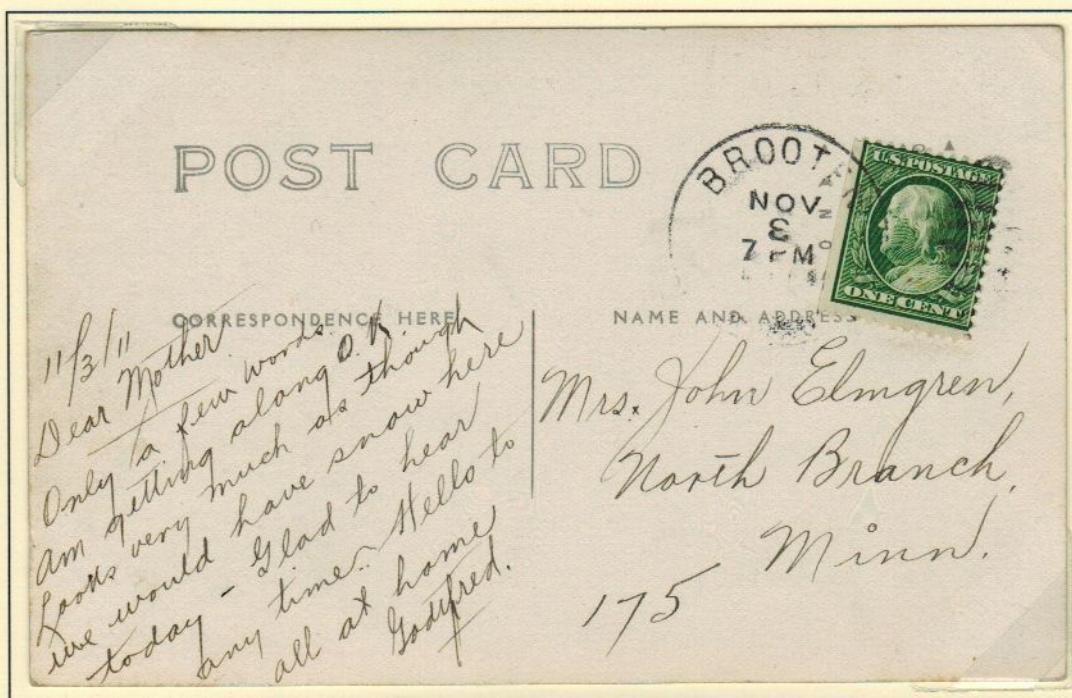 POST CARD
BROOTEN
NOV
8
7 PM
U.S. POSTAGE
ONE CENT
CORRESPONDENCE HERE
11/3/11
Dear Mother
Only a few words.
am getting along O.K.
Looks very much as though
we would have snow here
today - Glad to hear
any time. Hello to
all at home
Godtfred.
NAME AND ADDRESS
Mrs. John Elmgren,
North Branch,
Minn.
175